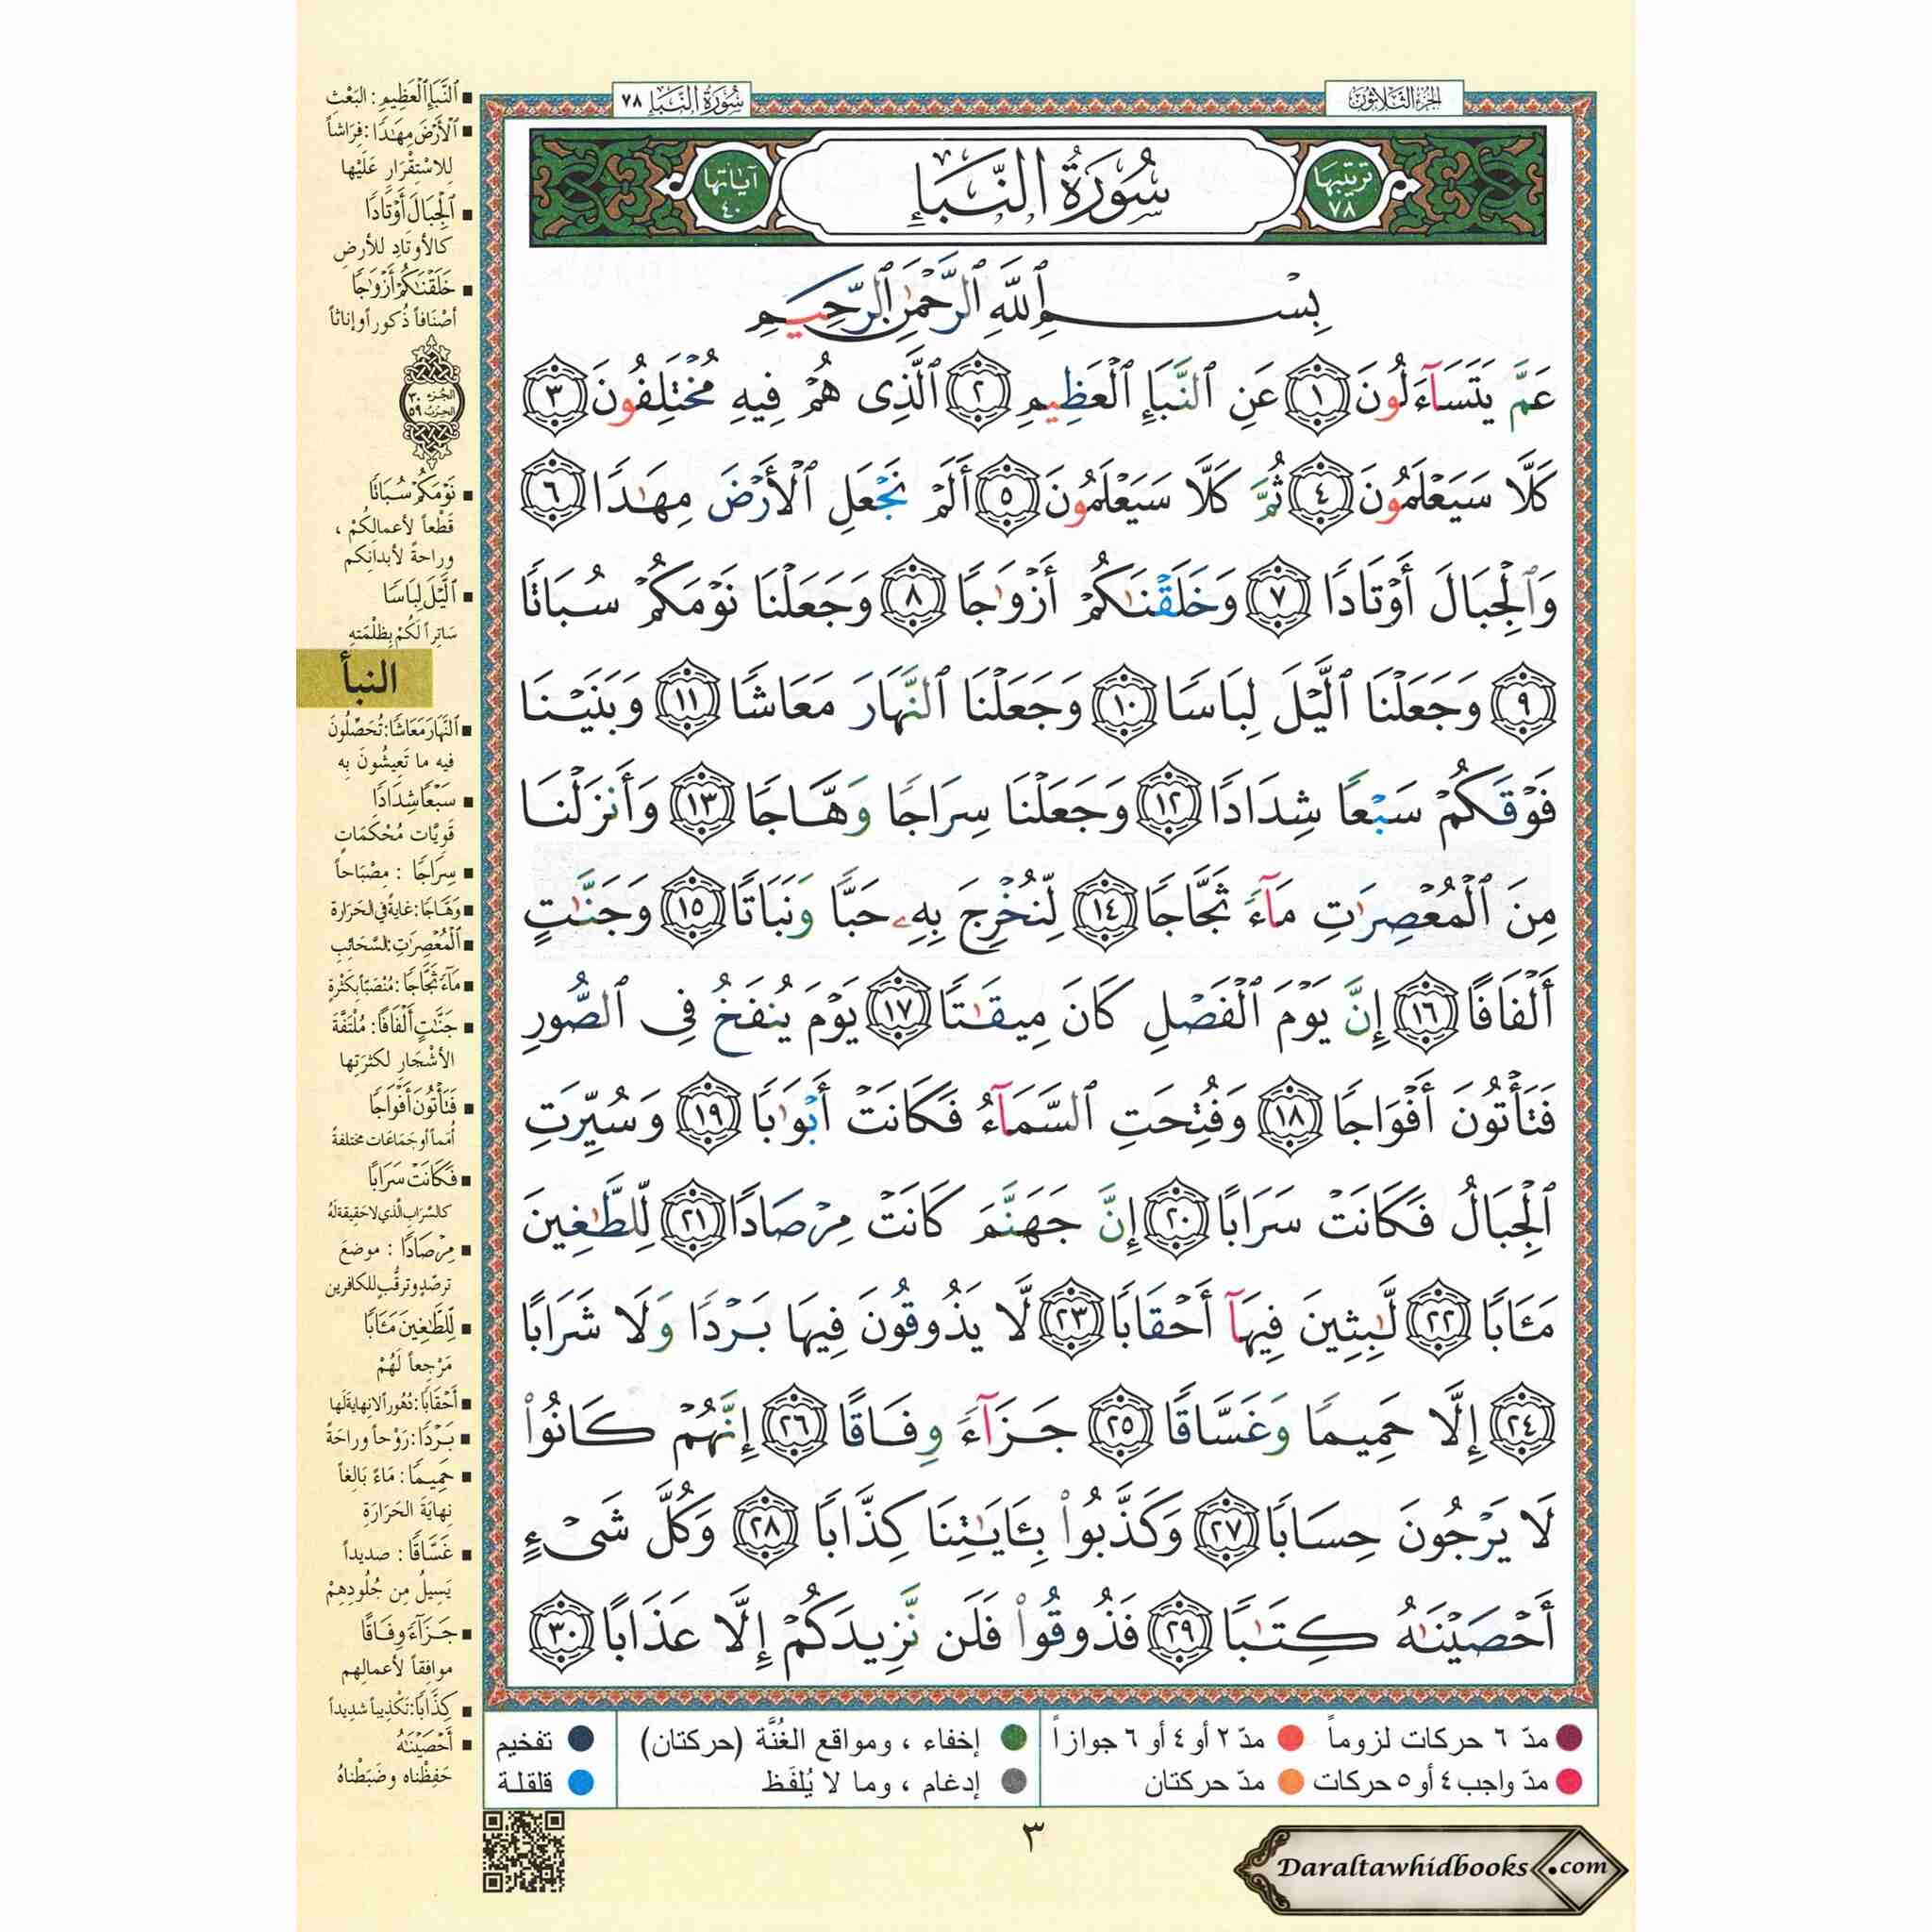 الجزء الثلاثون
سورة النبإ ٧٨
ترتيبها ٧٨
سُورَةُ النَّبَإِ
آياتها ٤٠
بِسْمِ ٱللَّهِ ٱلرَّحْمَٰنِ ٱلرَّحِيمِ
عَمَّ يَتَسَآءَلُونَ ١ عَنِ ٱلنَّبَإِ ٱلْعَظِيمِ ٢ ٱلَّذِى هُمْ فِيهِ مُخْتَلِفُونَ ٣
كَلَّا سَيَعْلَمُونَ ٤ ثُمَّ كَلَّا سَيَعْلَمُونَ ٥ أَلَمْ نَجْعَلِ ٱلْأَرْضَ مِهَٰدًا ٦
وَٱلْجِبَالَ أَوْتَادًا ٧ وَخَلَقْنَٰكُمْ أَزْوَٰجًا ٨ وَجَعَلْنَا نَوْمَكُمْ سُبَاتًا
٩ وَجَعَلْنَا ٱلَّيْلَ لِبَاسًا ١٠ وَجَعَلْنَا ٱلنَّهَارَ مَعَاشًا ١١ وَبَنَيْنَا
فَوْقَكُمْ سَبْعًا شِدَادًا ١٢ وَجَعَلْنَا سِرَاجًا وَهَّاجًا ١٣ وَأَنزَلْنَا
مِنَ ٱلْمُعْصِرَٰتِ مَآءً ثَجَّاجًا ١٤ لِّنُخْرِجَ بِهِۦ حَبًّا وَنَبَاتًا ١٥ وَجَنَّٰتٍ
أَلْفَافًا ١٦ إِنَّ يَوْمَ ٱلْفَصْلِ كَانَ مِيقَٰتًا ١٧ يَوْمَ يُنفَخُ فِى ٱلصُّورِ
فَتَأْتُونَ أَفْوَاجًا ١٨ وَفُتِحَتِ ٱلسَّمَآءُ فَكَانَتْ أَبْوَٰبًا ١٩ وَسُيِّرَتِ
ٱلْجِبَالُ فَكَانَتْ سَرَابًا ٢٠ إِنَّ جَهَنَّمَ كَانَتْ مِرْصَادًا ٢١ لِّلطَّٰغِينَ
مَـَٔابًا ٢٢ لَّٰبِثِينَ فِيهَآ أَحْقَابًا ٢٣ لَّا يَذُوقُونَ فِيهَا بَرْدًا وَلَا شَرَابًا
٢٤ إِلَّا حَمِيمًا وَغَسَّاقًا ٢٥ جَزَآءً وِفَاقًا ٢٦ إِنَّهُمْ كَانُوا۟
لَا يَرْجُونَ حِسَابًا ٢٧ وَكَذَّبُوا۟ بِـَٔايَٰتِنَا كِذَّابًا ٢٨ وَكُلَّ شَىْءٍ
أَحْصَيْنَٰهُ كِتَٰبًا ٢٩ فَذُوقُوا۟ فَلَن نَّزِيدَكُمْ إِلَّا عَذَابًا ٣٠
ٱلنَّبَإِ ٱلْعَظِيمِ: البَعْثِ
ٱلْأَرْضَ مِهَٰدًا: فِرَاشاً
لِلاسْتِقْرَارِ عَلَيْها
ٱلْجِبَالَ أَوْتَادًا
كالأوتَادِ للأرضِ
خَلَقْنَٰكُمْ أَزْوَٰجًا
أصْنَافاً ذُكوراً وإناثاً
الجزء ٣٠
الحزب ٥٩
نَوْمَكُمْ سُبَاتًا
قَطْعاً لأعمالِكُمْ ،
وراحةً لأبدانِكم
ٱلَّيْلَ لِبَاسًا
سَاتِراً لَكُمْ بِظلْمَتهِ
النبأ
ٱلنَّهَارَ مَعَاشًا: تُحَصِّلُونَ
فيه ما تَعِيشُونَ بِه
سَبْعًا شِدَادًا
قَوِيَّات مُحْكَمَاتٍ
سِرَاجًا : مِصْبَاحاً
وَهَّاجًا: غاية في الحَرَارة
ٱلْمُعْصِرَٰتِ: السَّحَائِبِ
مَآءً ثَجَّاجًا: مُنْصَبّاً بِكَثْرةٍ
جَنَّٰتٍ أَلْفَافًا: مُلْتَفَّةَ
الأشْجَارِ لكثرَتِها
فَتَأْتُونَ أَفْوَاجًا
أُمَماً أو جَمَاعَات مختلفةً
فَكَانَتْ سَرَابًا
كالسَّرَابِ الَّذي لا حَقِيقة لَهُ
مِرْصَادًا : موضعَ
ترصّدٍ وترقُّبٍ للكافرين
لِّلطَّٰغِينَ مَـَٔابًا
مَرْجِعاً لَهُمْ
أَحْقَابًا: دُهُوراً لا نِهايَةَ لَها
بَرْدًا: رَوْحاً وراحَةً
حَمِيمًا: مَاءً بَالِغاً
نِهايَةَ الحَرَارَةِ
غَسَّاقًا: صديداً
يَسِيلُ مِن جُلُودِهِمْ
جَزَآءً وِفَاقًا
موافِقاً لأعمالِهم
كِذَّابًا: تَكْذِيباً شَدِيداً
أَحْصَيْنَٰهُ
حَفِظْناه وضَبَطْناهُ
مدّ ٦ حركات لزوماً
مدّ ٢ أو ٤ أو ٦ جوازاً
إخفاء ، ومواقع الغُنَّة (حركتان)
تفخيم
مدّ واجب ٤ أو ٥ حركات
مدّ حركتان
إدغام ، وما لا يُلفَظ
قلقلة
٣
Daraltawhidbooks.com